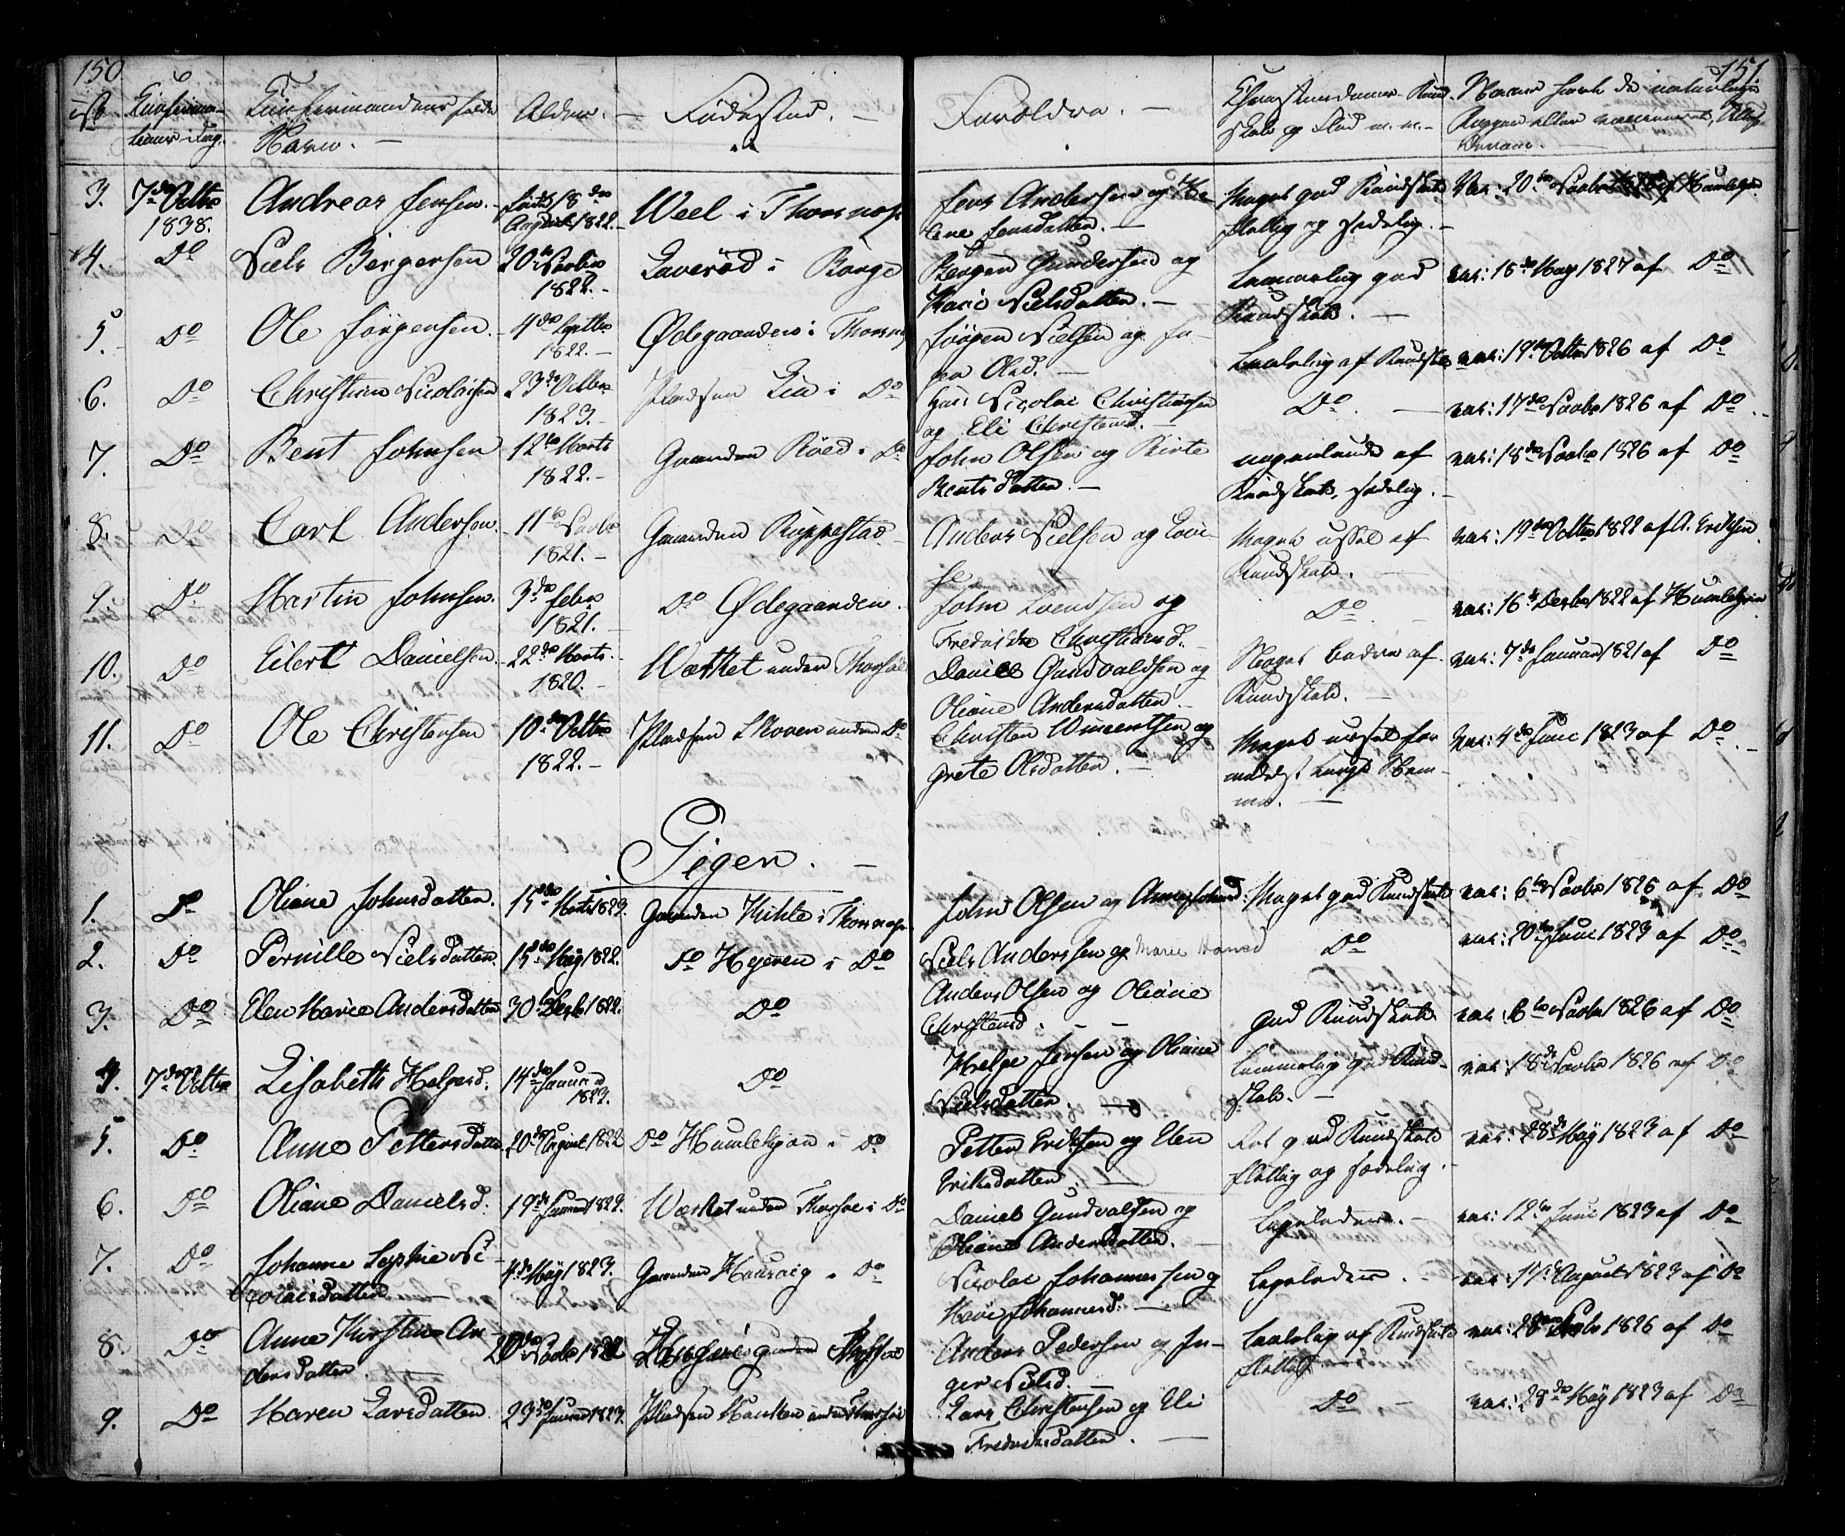 150
151.
No
Confirma-
tions-Dag.
Confirmandens fulde
Navn. —
Alder. —
Fødested. —
Forældre. —
Christendoms Kund-
skab og Flid m. m. —
Naar
de naturlige
Kopper eller vaccineret,
3. 7de Octbr 1838. Andreas Jensen. — født 18de August 1822. — Weel i Thorsnæs
Jens Andersen og He-
lene Jensdatter. —
Meget god Kundskab
flittig og sædelig. —
Vac: 20de Novbr af Humlekjær
4. Do Niels Børgersen 20de Novbr 1822. — Laverød i Borge
Børgen Gundersen og
Marie Nielsdatter. —
temmelig god
Kundskab. —
vac: 15de May 1827 af Do
5. Do Ole Jørgensen. 4de Septbr 1822. — Ødegaarden i Thorsnæs
Jørgen Nielsen og In-
ger Olsd. —
Taalelig af Kundskab vac: 19de Octbr 1826 af Do
6. Do Christian Nicolaisen 23de Octbr 1823. — Pladsen Lia i Do
Nicolai Christiansen
og Eli Christensd. —
Do. — vac: 17de Novbr 1826 af Do
7. Do Bent Johnsen 12te Marts 1822. — Gaarden Røed i Do
John Olsen og Birte
Bentsdatter. —
af
Kundskab, sædelig. —
vac: 18de Novbr 1826 af Do
8. Do Carl Andersen. 11te Novbr 1821. — Gaarden Roppestad —
Anders Nielsen og Lovi-
se
Meget ussel af
Kundskab. —
vac: 19de Octbr 1822 af A. Eriksen.
9. Do Martin Johnsen. 3de Febr 1821. — Do Ødegaarden.
John Svendsen og
Fredrikke Christiansd. —
Do. — vac: 16de Decbr 1822 af Humlekjær
10. Do Eilert Danielsen 22de Marts 1820. — Værket under Thorsøe
Daniel Gundvaldsen og
Oliane Andersdatter. —
Noget bedre af
Kundskab. —
vac: 7de Januar 1821 af Do
11. Do Ole Christensen 10de Octbr 1822. — Pladsen Skoven under Do
Christen Vincentsen og
Grete Olsdatter. —
Meget ussel for-
medelst
vac: 4de Juni 1823 af Do. —
Piger. —
1. Do Oliane Johnsdatter. 15de Marts 1823. Gaarden Kihle i Thorsnæs
John Olsen og Anne Johnsd: Meget god Kundskab vac: 6te Novbr 1826 af Do
2. Do Pernille Nielsdatter. 15de May 1822. Do Hyeren i Do
Niels Anderssen og Marie Hansd Do vac: 20de Juni 1823 af Do
3. Do Elen Marie Andersdatter 30te Decbr 1822. Do
Anders Olsen og Oliane
Christensd. —
god Kundskab vac: 6te Novbr 1826 af Do
4. 7de Octbr Lisabeth Helgesd. 14de Januar 1823. Do
Helge Jensen og Oliane
Nielsdatter. —
temmelig god Kund-
skab. —
vac: 18de Novbr 1826 af Do
5. Do Anne Pettersdatter 20de August 1822 Do Humlekjær i Do
Petter Eriksen og Elen
Eriksdatter.
Ret god Kundskab
flittig og sædelig. —
vac: 28de May 1823 af Do
6. Do Oliane Danielsd. 19de Januar 1823. Værket under Thorsøe i Do
Daniel Gundvalsen og
Oliane Andersdatter. —
Ligeledes. — vac: 12te Juni 1823 af Do
7. Do Johanne Sophie Ni-
colaisdatter — 4de May 1823. Gaarden Haursvig i Do
Nicolai Johannessen og
Marie Johannesd. —
Ligeledes. — vac: 17de August 1823 af Do
8. Do Anne Kirstine An-
dersdatter. — 20de Novbr 1822 under Thorsøe
Anders Pedersen og In-
ger Nielsd. —
Taalelig af Kundskab
flittig
vac: 28de Novbr 1826 af Do
9. Do Maren Larsdatter. 23de Januar 1823. Pladsen Hauken under Thorsøe
Lars Christensen og Eli
Fredriksdatter. —
Do — vac: 28de May 1823 af Do